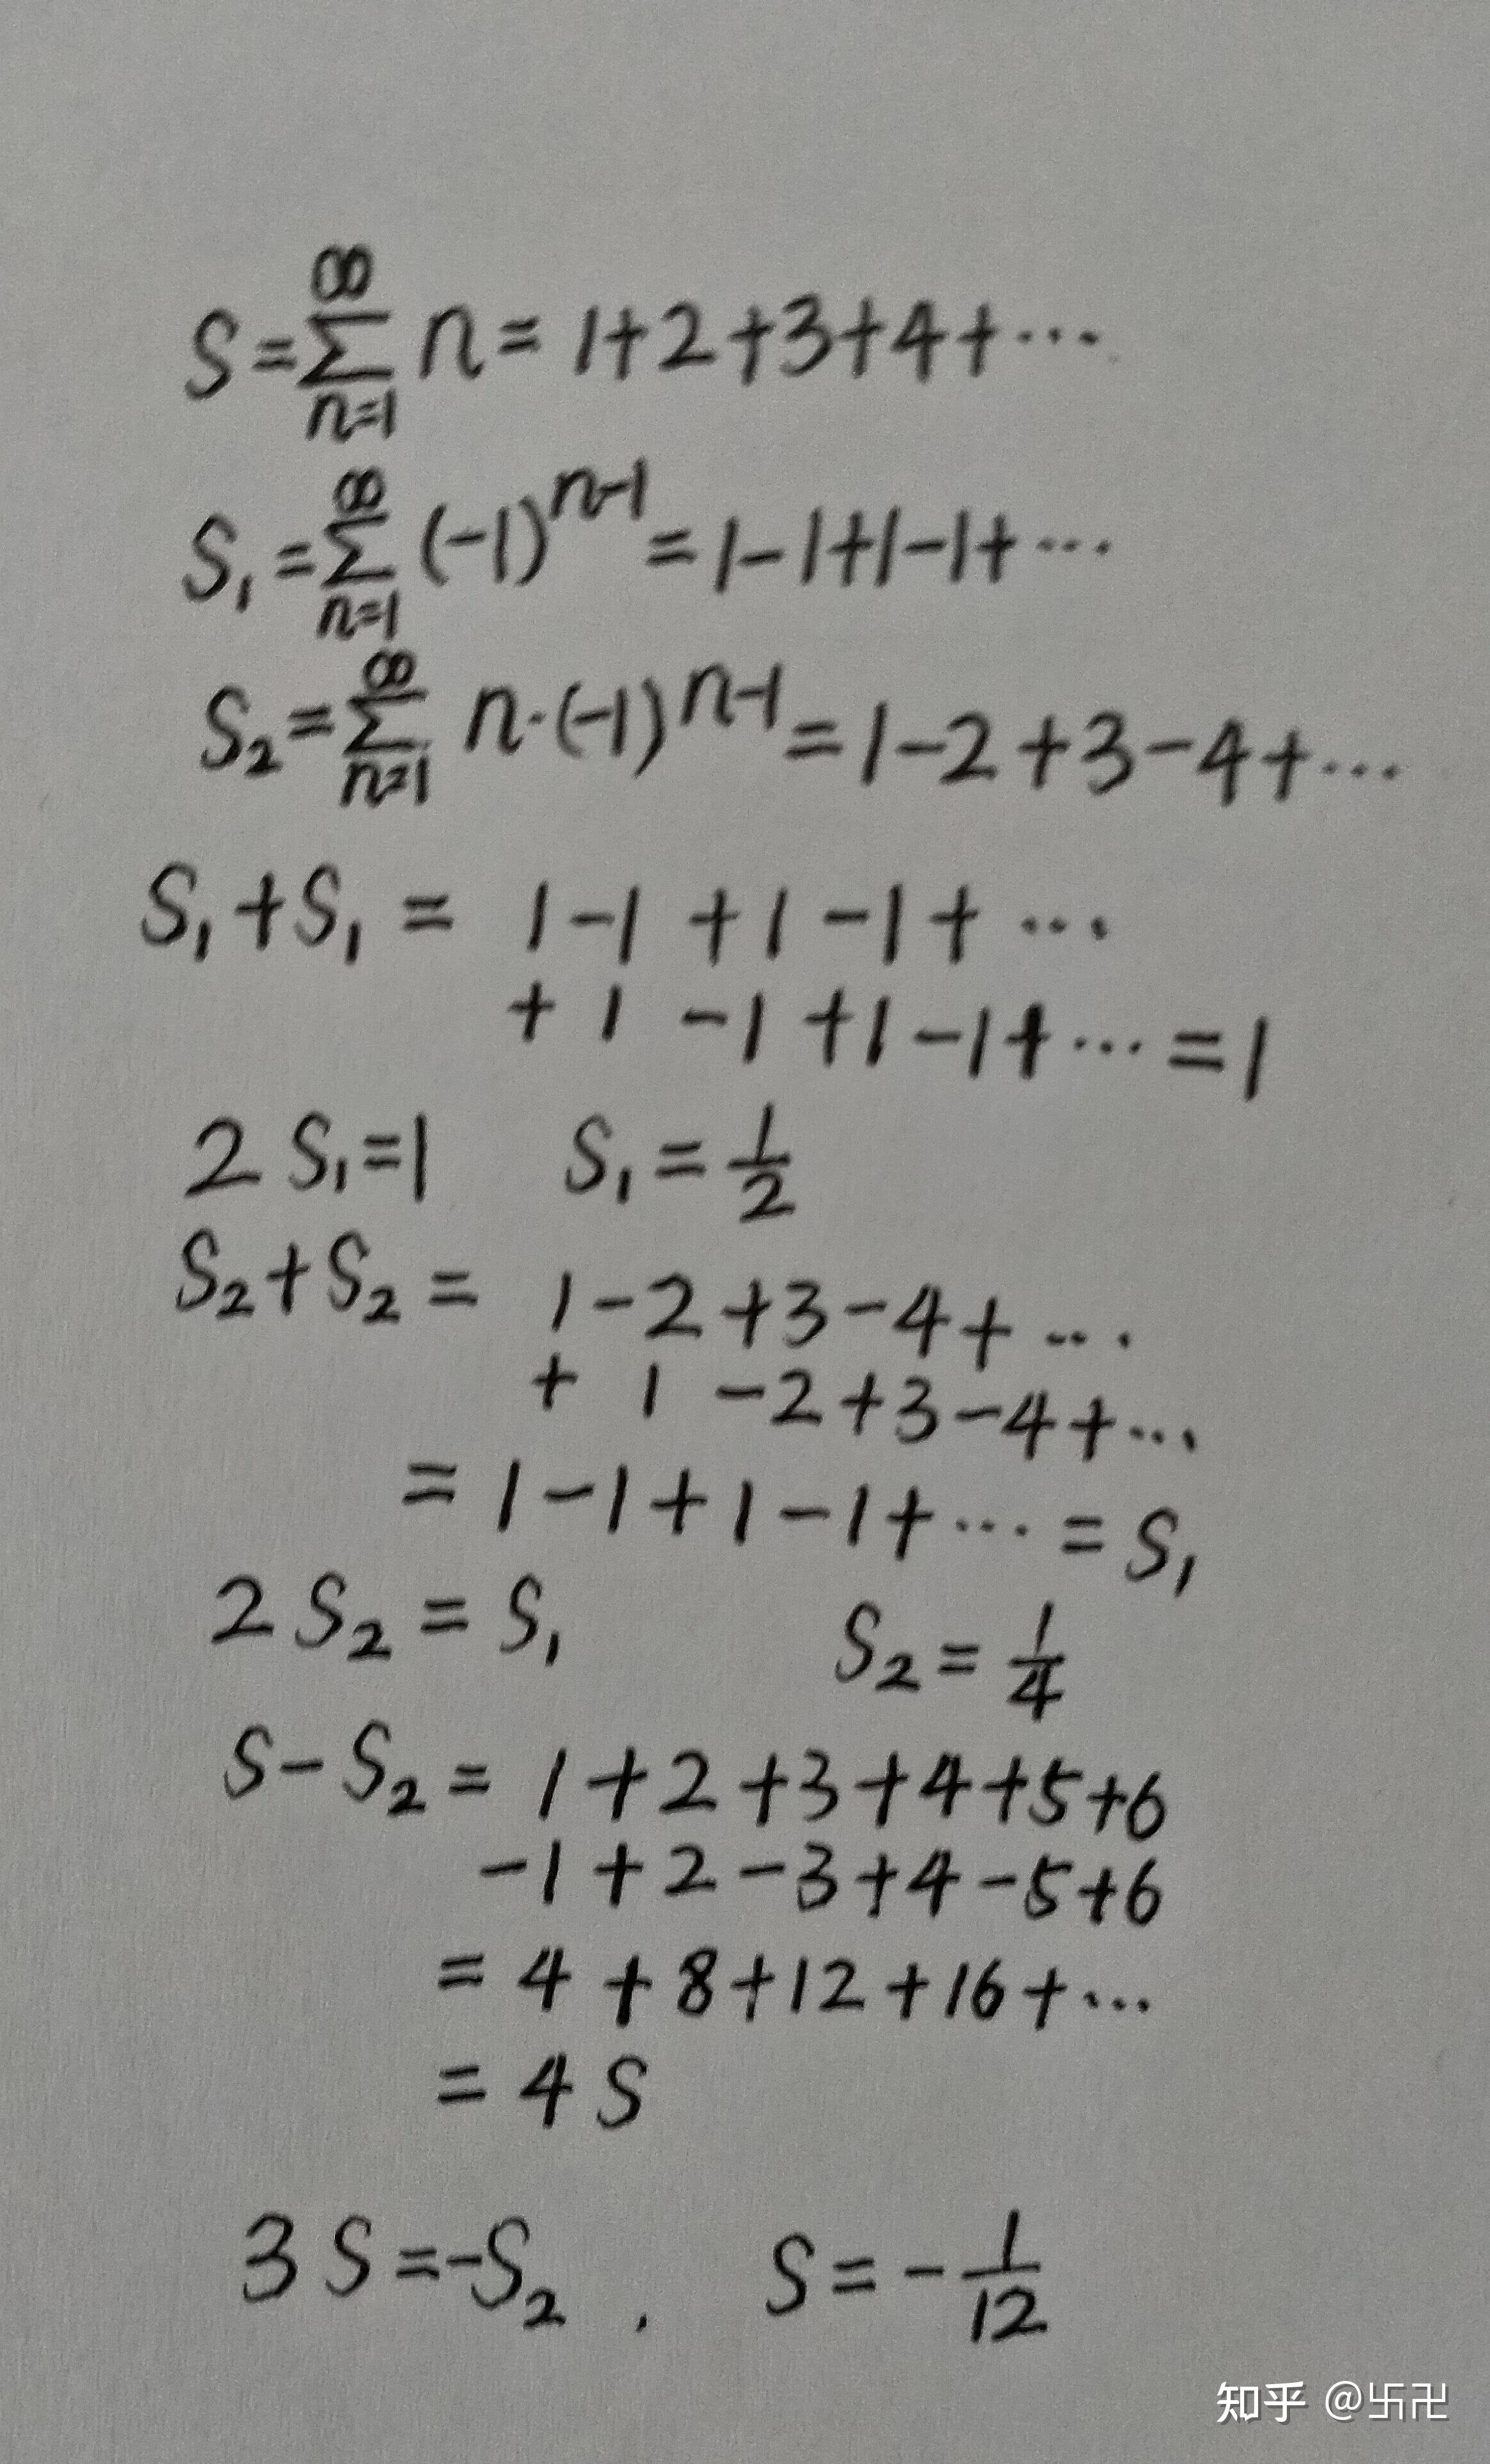 S = ∑_{n=1}^{∞} n = 1+2+3+4+···
S₁ = ∑_{n=1}^{∞} (-1)^{n-1} = 1-1+1-1+···
S₂ = ∑_{n=1}^{∞} n·(-1)^{n-1} = 1-2+3-4+···
S₁+S₁ = 1-1+1-1+···
+1-1+1-1+···=1
2S₁=1 S₁=1/2
S₂+S₂ = 1-2+3-4+···
+1-2+3-4+···
=1-1+1-1+···=S₁
2S₂=S₁ S₂=1/4
S-S₂=1+2+3+4+5+6
-1+2-3+4-5+6
=4+8+12+16+···
=4S
3S=-S₂. S=-1/12
知乎 @卐卍